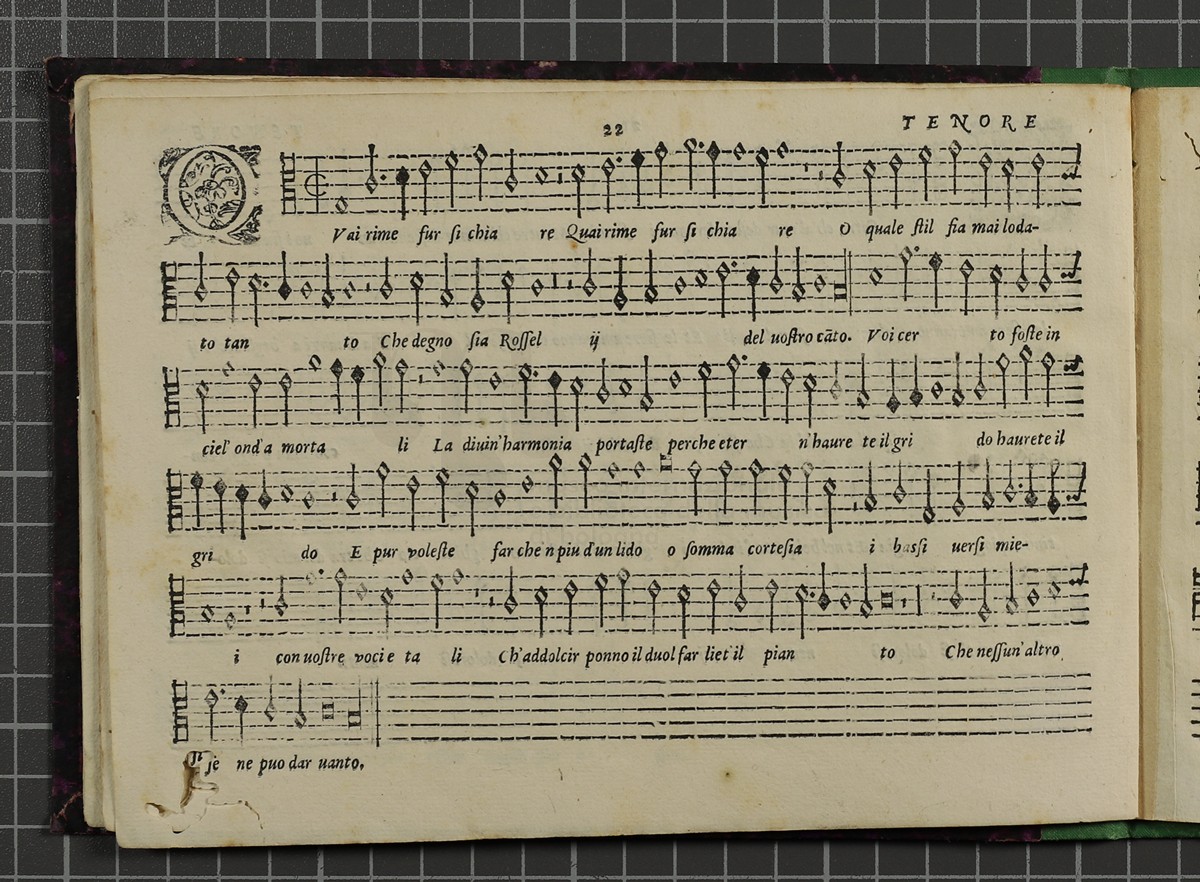 22 TENORE
QVai rime fur ſi chia re Quai rime fur ſi chia re O quale ſtil fia mai loda-
to tan to Che degno ſia Roſſel ij del uoſtro cãto. Voi cer to foſte in
ciel' ond'a morta li La diuin'harmonia portaſte perche eter n'haure te il gri do haurete il
gri do E pur voleſte far che n piu d'un lido o ſomma corteſia i baſſi uerſi mie-
i con uoſtre voci e ta li Ch'addolcir ponno il duol far liet'il pian to Che neſſun'altro
ſtile ne puo dar uanto.